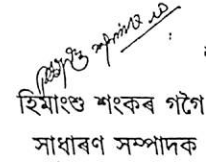 হিমাংশু শংকৰ গগৈ
সাধাৰণ সম্পাদক